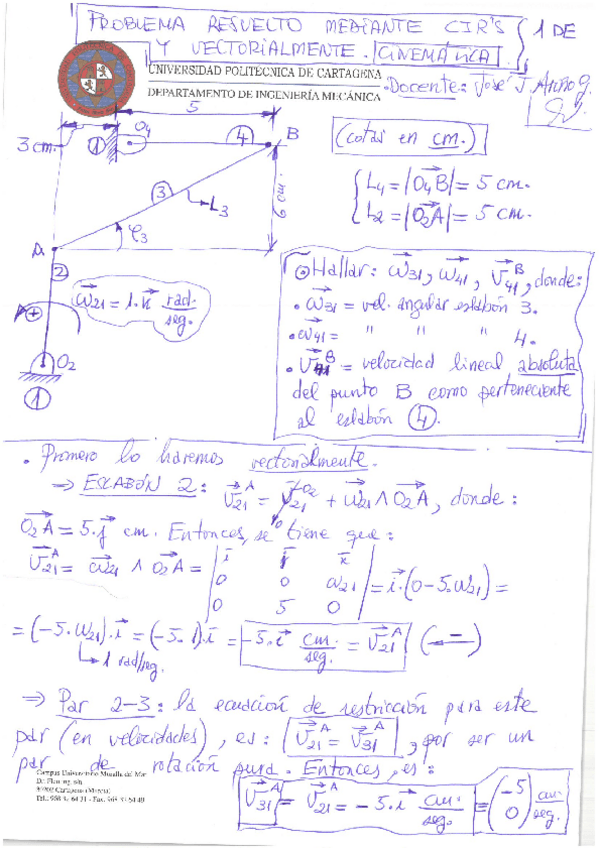 PROBLEMA RESUELTO MEDIANTE CIR'S
Y VECTORIALMENTE. CINEMÁTICA
1 DE
UNIVERSIDAD POLITECNICA DE CARTAGENA
DEPARTAMENTO DE INGENIERÍA MECÁNICA
Docente: José J.
5
3 cm.
1
O4
4
B
3
L3
6 cm.
φ3
A
2
ω21 = 1·k rad./seg.
+
O2
1
(cotas en cm.)
L4 = |O4B| = 5 cm.
L2 = |O2A| = 5 cm.
Hallar: ω31, ω41, V41^B, donde:
• ω31 = vel. angular eslabón 3.
• ω41 = " " " 4.
• V41^B = velocidad lineal absoluta
del punto B como perteneciente
al eslabón 4.
• Primero lo haremos vectorialmente.
⇒ ESLABÓN 2: V21^A = V21^O2 + ω21 ∧ O2A, donde:
0
O2A = 5·j cm. Entonces, se tiene que:
V21^A = ω21 ∧ O2A = | i j k | 0 0 ω21 | 0 5 0 | = i·(0-5·ω21) =
= (-5·ω21)·i = (-5·1)·i = -5·i cm./seg. = V21^A (←)
↳ 1 rad/seg.
⇒ Par 2-3: la ecuación de restricción para este
par (en velocidades), es: V21^A = V31^A, por ser un
par de rotación pura. Entonces, es:
V31^A = V21^A = -5·i cm./seg. = (-5 0) cm./seg.
Campus Universitario Muralla del Mar
30202 Cartagena (Murcia)